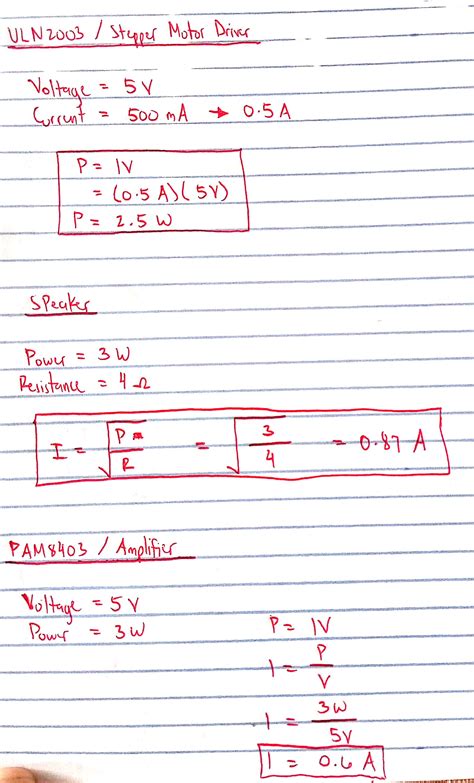 ULN2003 / Stepper Motor Driver
Voltage = 5V
Current = 500 mA → 0.5 A
P = IV
= (0.5 A)(5V)
P = 2.5 W
Speaker
Power = 3 W
Resistance = 4 Ω
I = √(P/R) = √(3/4) = 0.87 A
PAM8403 / Amplifier
Voltage = 5V
Power = 3W
P = IV
I = P/V
I = 3W/5V
I = 0.6 A